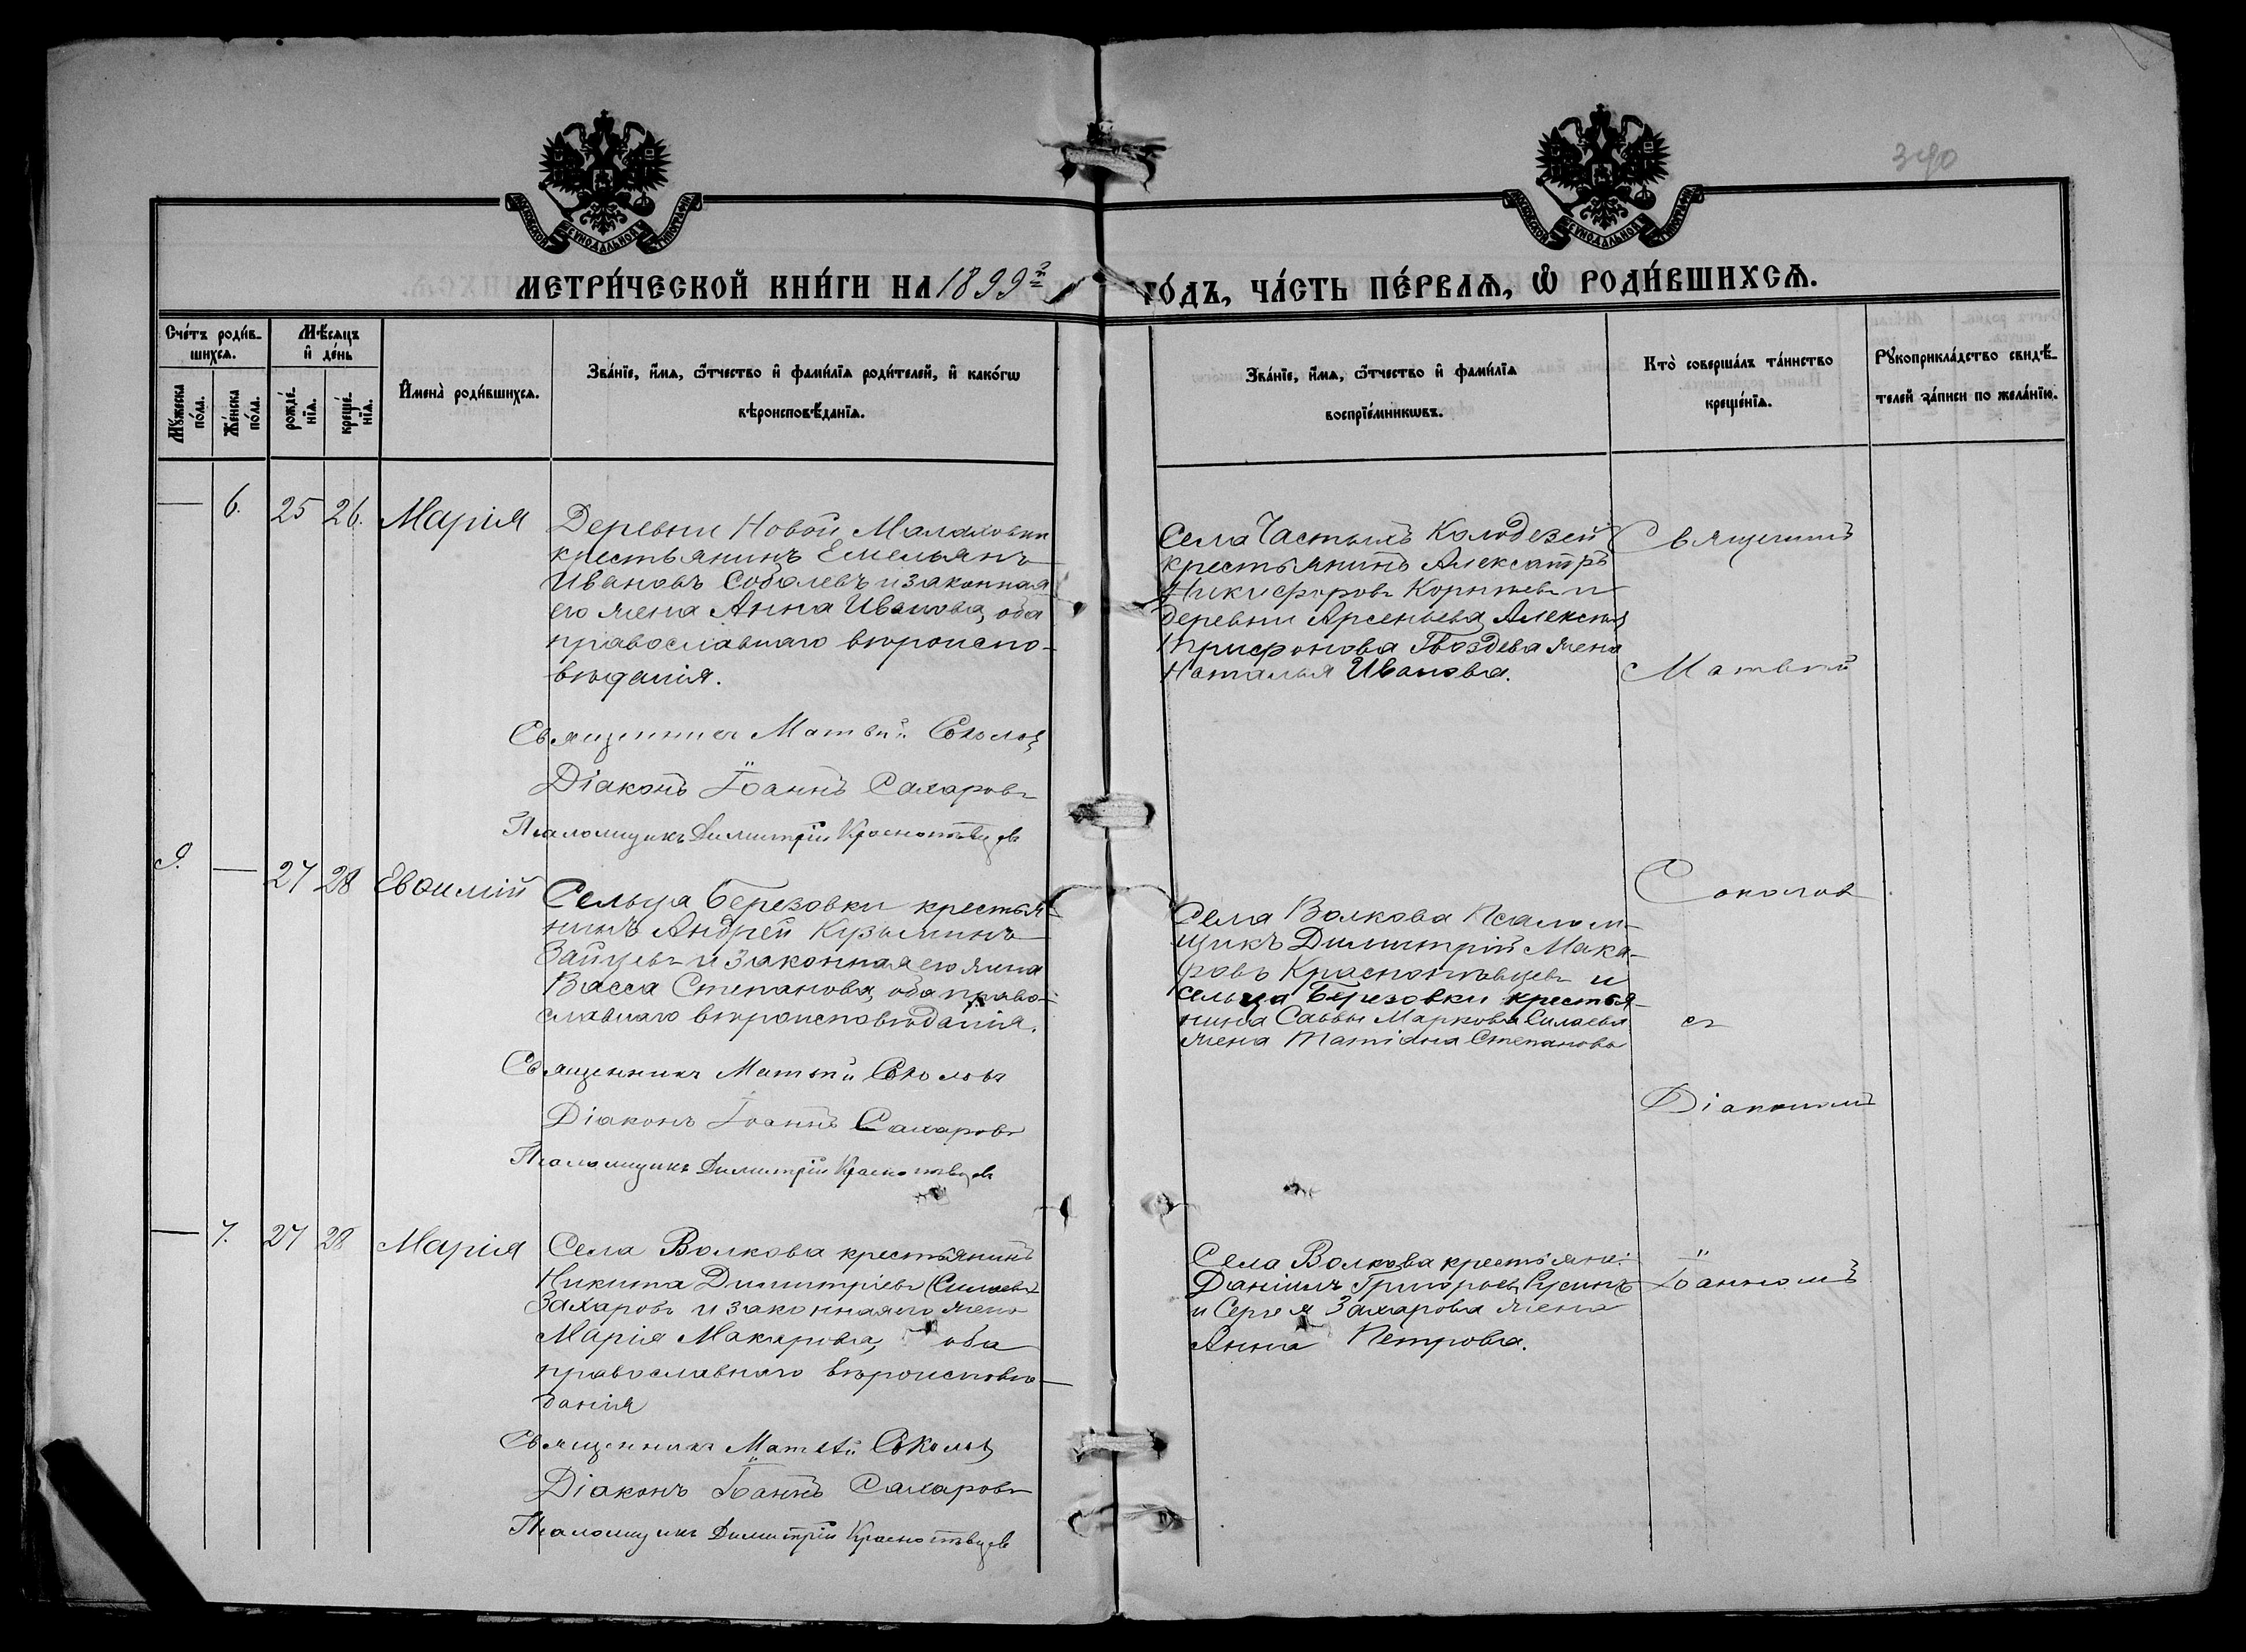 390
МОСКОВСКОЙ СУНОДАЛЬНОЙ ТИПОГРАФІИ
МОСКОВСКОЙ СУНОДАЛЬНОЙ ТИПОГРАФІИ
МЕТРИ́ЧЕСКОЙ КНИ́ГИ НА 1899 г. ГО́ДЪ, ЧА́СТЬ ПЕ́РВАѦ, Ѿ РОДИ́ВШИХСѦ.
Сче́тъ роди́в-
шихсѧ.
Мꙋ́жеска
по́ла.
Же́нска
по́ла.
Мѣ́сѧцъ
и҆ де́нь
рожде́-
нїѧ.
креще́-
нїѧ.
И҆мена̀ роди́вшихсѧ.
Зва́нїе, и҆́мѧ, ѻ҆́тчество и҆ фами́лїѧ роди́телей, и҆ како́гѡ
вѣроисповѣ́данїѧ.
Зва́нїе, и҆́мѧ, ѻ҆́тчество и҆ фами́лїѧ
воспрїе́мникѡвъ.
Кто̀ соверша́лъ та́инство
креще́нїѧ.
Рꙋкоприкла́дство свидѣ́-
телей за́писи по жела́нїю.
— 6. 25 26. Марія
Деревни Новой Малаховки
крестьянинъ Емельянъ
Ивановъ Соболевъ и законная
его жена Анна Иванова, оба
православнаго вѣроиспо-
вѣданія.
Священникъ Матвѣй Соколовъ
Діаконъ Іоаннъ Сахаровъ
Псаломщикъ Димитрій Краснопѣвцевъ
Села Частыхъ Колодезей
крестьянинъ Александръ
Никифоровъ и
деревни Арсеньева Алексѣя
Трифонова Гвоздева жена
Наталья Иванова.
Священникъ
Матвѣй
Соколов
ъ
9. — 27 28 Евѳимій
Сельца Березовки крестья-
нинъ Андрей Кузьминъ
Зайцевъ и законная его жена
Васса Степанова, оба право-
славнаго вѣроисповѣданія.
Священникъ Матвѣй Соколовъ
Діаконъ Іоаннъ Сахаровъ
Псаломщикъ Димитрій Краснопѣвцевъ
Села Волкова Псалом-
щикъ Димитрій Мака-
ровъ Краснопѣвцевъ и
сельца Березовки крестья-
нина Саввы Маркова Силаева
жена Татіана Степанова
съ
Діакономъ
— 7. 27 28 Марія
Села Волкова крестьянинъ
Никита Димитріевъ
Захаровъ и законная его жена
Марія Макарова, оба
православнаго вѣроисповѣ-
данія
Священникъ Матвѣй Соколовъ
Діаконъ Іоаннъ Сахаровъ
Псаломщикъ Димитрій Краснопѣвцевъ
Села Волкова крестьяне:
Даніилъ Григорьевъ
и Сергѣя Захарова жена
Анна Петрова.
Іоанномъ